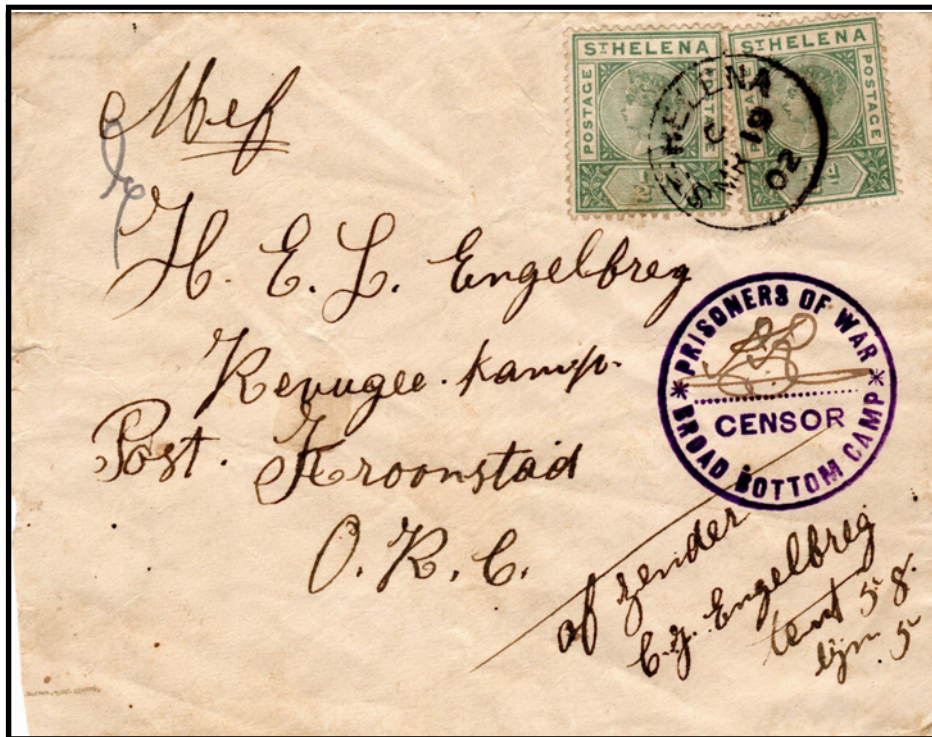 ST HELENA
POSTAGE
POSTAGE
ST HELENA
POSTAGE
POSTAGE
ST. HELENA
C
MR 19
02
Mej
H. E. L. Engelbreg
Revugee. kamp.
Post. Kroonstad
O. R. C.
PRISONERS OF WAR
CENSOR
BROAD BOTTOM CAMP
af zender
C. J. Engelbreg
tent 58.
lijn. 5